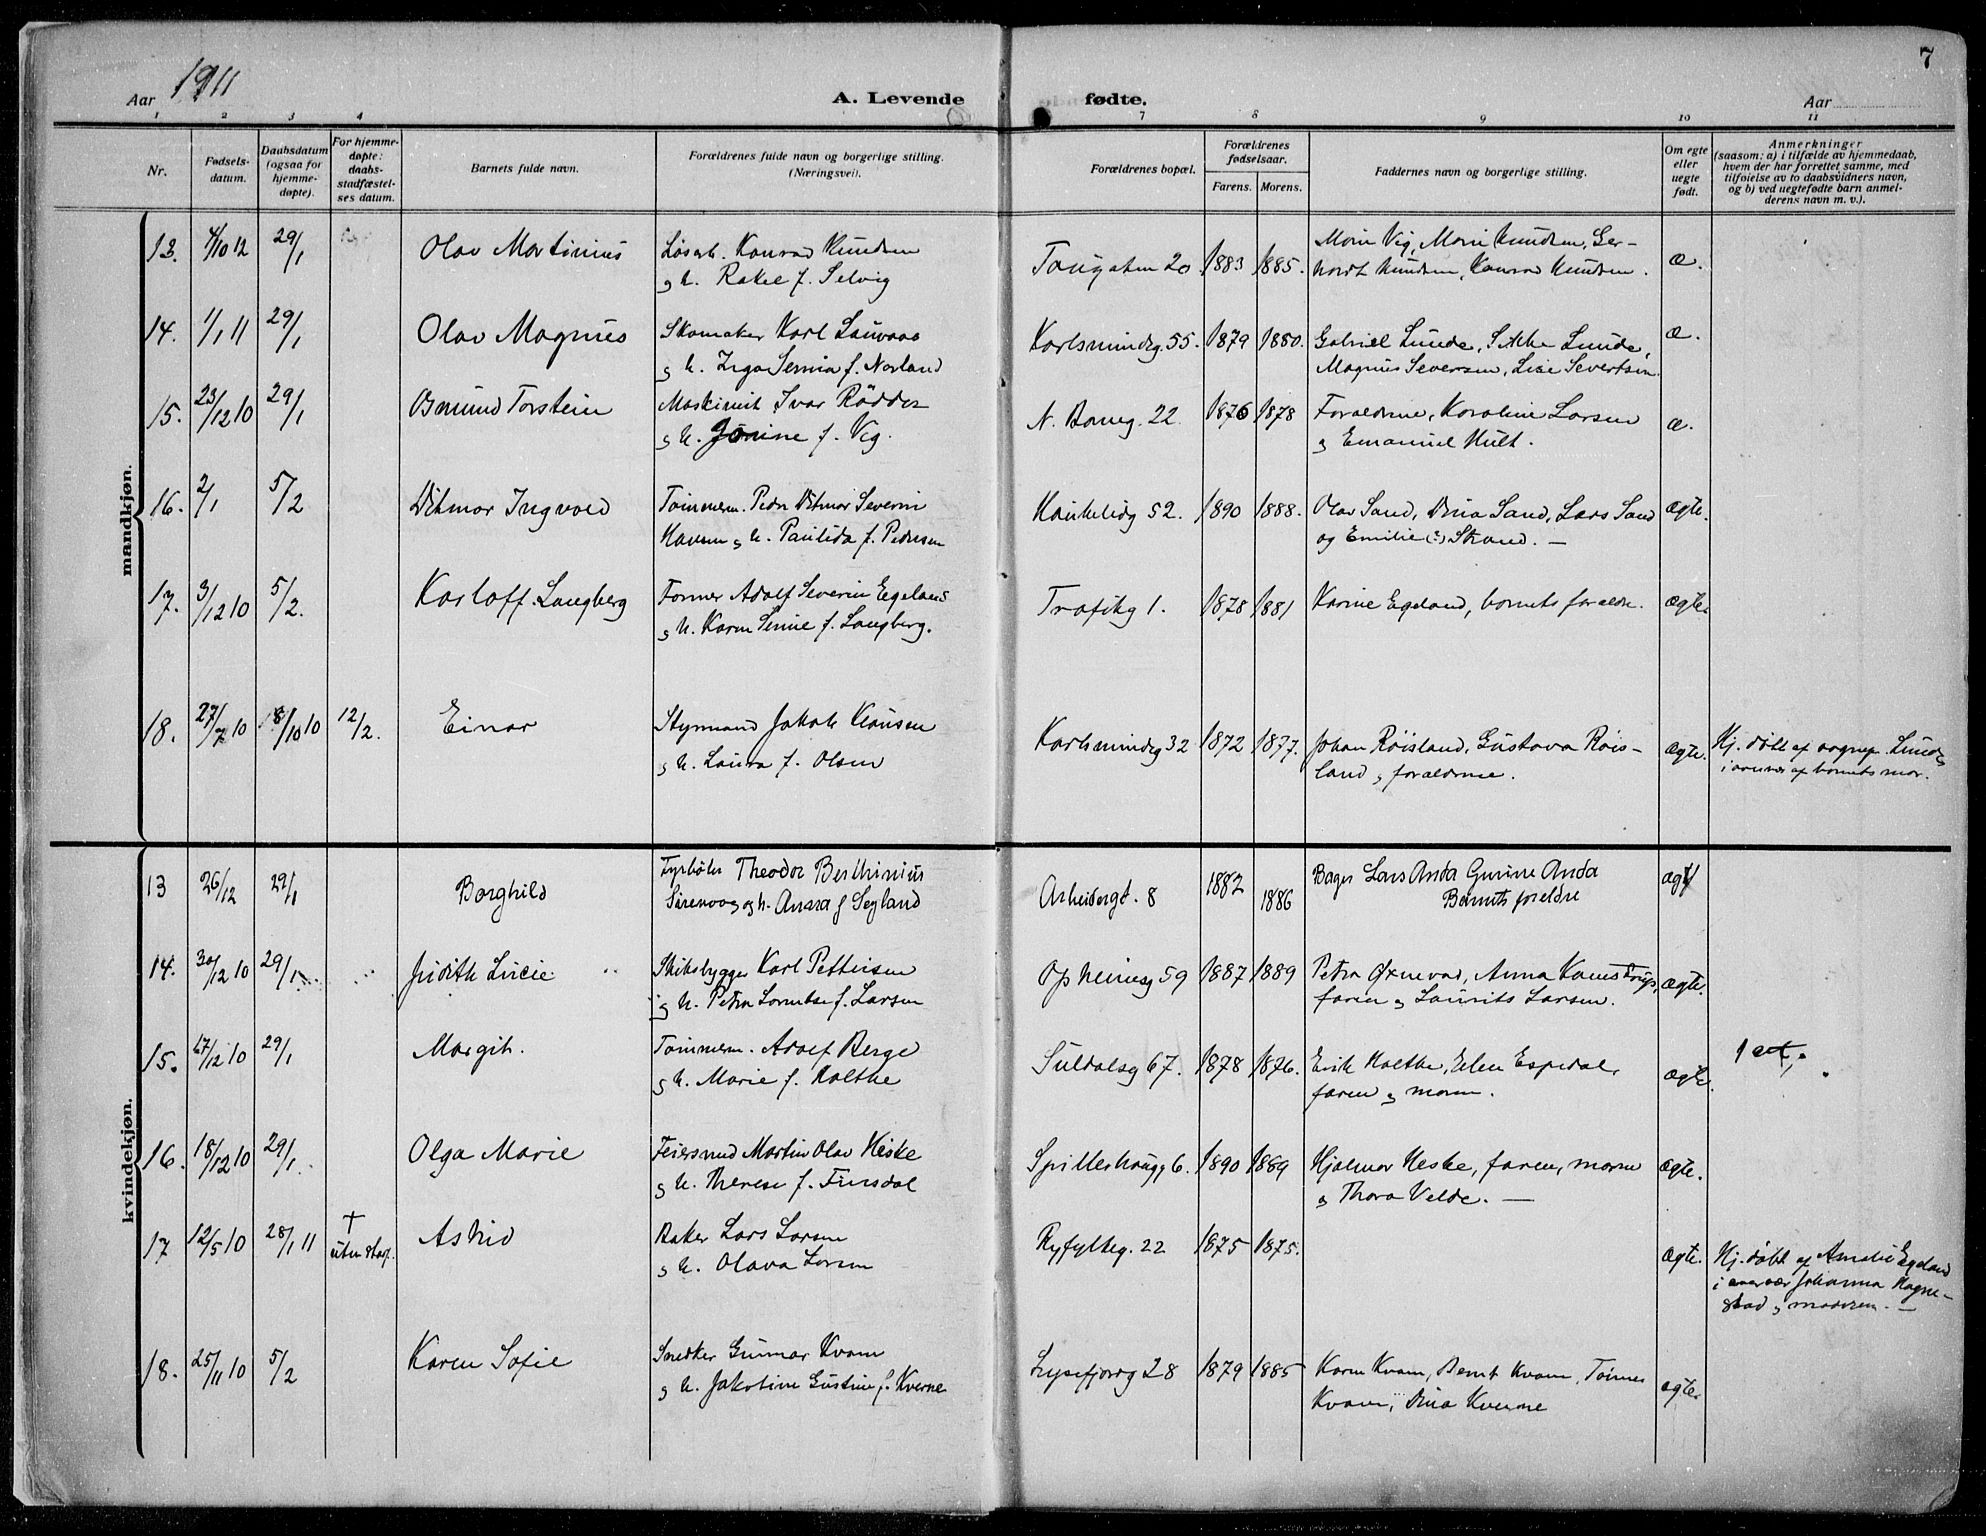 7
Aar 1911
A. Levende fødte.
Aar
1 2 3 4 7 8 9 10 11
Nr.
Fødsels-
datum.
Daabsdatum
(ogsaa for
hjemme-
døpte).
For hjemme-
døpte:
daabs-
stadfæstel-
ses datum.
Barnets fulde navn.
Forældrenes fulde navn og borgerlige stilling.
(Næringsvei).
Forældrenes bopæl.
Forældrenes
fødselsaar.
Farens. Morens.
Faddernes navn og borgerlige stilling.
Om egte
eller
uegte
født.
Anmerkninger
(saasom: a) i tilfælde av hjemmedaab,
hvem der har forrettet samme, med
tilføielse av to daabsvidners navn,
og b) ved uegtefødte barn anmel-
derens navn m. v.).
mandkjøn.
13. 4/10 12 29/1 Olav Martinius Løsarb. Konrad Knudsen
g h. Rakel f. Selvig
20 1883 1885. Marie Vig, Marie Knudsen, Ger-
hardt Knudsen, Konrad Knudsen. æ.
14. 1/1 11 29/1 Olav Magnus Skomaker Karl Lauvaas
g h. Inga Serina f. Norland
Karlsmindeg. 55. 1879 1880. Gabriel Lunde, Lunde,
Magnus Seversen, Lise Severtsen. æ.
15. 23/12 10 29/1 Osmund Torstein Maskinist Ivar Rödder
g h. Jonine f. Vig.
N. Baneg. 22. 1876 1878 Forældrene, Karoline Larsen
g Emanuel Hult. æ.
16. 2/1 5/2 Ditmar Ingvald Tömmerm. Peder Ditmar Severin
Hansen g h. Paulida f. Pedersen
Haukelidg 52. 1890 1888. Olav Sand, Dina Sand, Lars Sand
og Emilie (?) Strand. — ægte.
17. 3/12 10 5/2. Karloff Langberg Former Adolf Severin Egeland
g h. Karen Serine f. Langberg.
Trafikg 1. 1878 1881 Karine Egeland, barnets forældre. ægte
18. 27/7 10 18/10 10 12/2. Einar Styrmand Jakob Klausen
g h. Laura f. Olsen
Karlsmindeg 32 1872 1877. Johan Røisland, Gustava Røis-
land g forældrene. ægte. Hj. döbt af Lunde
i af barnets mor.
kvindekjøn.
13 26/12 29/1 Borghild Fyrbøter Theodor Berthinius
Sirevaag og h. Anna f Seyland
Arbeidergt. 8 1882 1886 Bager Lars Anda Gurine Anda
Barnets foreldre ægt
14. 30/12 10 29/1 Judith Lucie Skibsbygger Karl Pettersen
g h. Petra f. Larsen
Opheimsg 59 1887 1889 Petra Øxnevad, Anna
faren g Laurits Larsen. ægte.
15. 17/12 10 29/1 Margit. Tömmerm. Adolf Berge
g h. Marie f. Holthe
Suldalsg 67. 1878 1876. Erik Holthe, Elen Espedal,
faren g moren. ægte. 1 att.
16. 18/12 10 29/1 Olga Marie Feiersvend Martin Olav Heske
g h. Therese f. Finsdal
Spilderhaugg 6. 1890 1889 Hjalmar Heske, faren, moren
g Thora Velde. — ægte.
17 12/5 10 28/1 11 †
uten staf. Astrid Baker Lars Larsen
g h. Olava Larsen
Ryfylkeg. 22 1875 1875. ægte. Hj. döbt af Amalie Egeland
i overvær Johanna Hogne-
stad g moderen. —
18. 25/11 10 5/2 Karen Sofie Snedker Gunnar Kvam
g h. Jakobine Gustine f. Kverne
Lysefjordg 28 1879 1885 Karen Kvam, Bernt Kvam, Tönnes
Kvam, Dina Kverne ægte